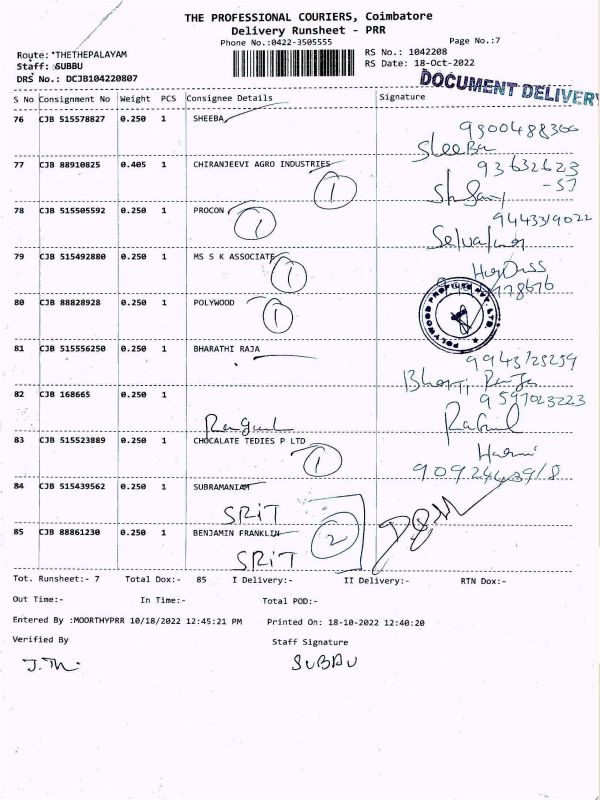 THE PROFESSIONAL COURIERS, Coimbatore
Delivery Runsheet - PRR
Phone No.:0422-3505555
Page No.:7
Route: THETHEPALAYAM
RS No.: 1042208
Staff: SUBBU
RS Date: 18-Oct-2022
DRS No.: DCJB104220807
DOCUMENT DELIVERY
S No Consignment No Weight PCS Consignee Details Signature
76 CJB 515578827 0.250 1 SHEEBA
9300488300
SheeBa
77 CJB 88910825 0.405 1 CHIRANJEEVI AGRO INDUSTRIES
1
93632623
-57
78 CJB 515505592 0.250 1 PROCON
1
79 CJB 515492880 0.250 1 MS S K ASSOCIATE
1
80 CJB 88828928 0.250 1 POLYWOOD
1
POLYWOOD PROFILES PVT. LTD.
81 CJB 515556250 0.250 1 BHARATHI RAJA
9943125259
82 CJB 168665 0.250 1
9597023223
Ragul
Ragul
83 CJB 515523889 0.250 1 CHOCALATE TEDIES P LTD
1
84 CJB 515439562 0.250 1 SUBRAMANIAM
SRIT
85 CJB 88861230 0.250 1 BENJAMIN FRANKLIN
SRIT
2
Tot. Runsheet:- 7 Total Dox:- 85 I Delivery:- II Delivery:- RTN Dox:-
Out Time:- In Time:- Total POD:-
Entered By :MOORTHYPRR 10/18/2022 12:45:21 PM Printed On: 18-10-2022 12:40:20
Verified By Staff Signature
SUBBU